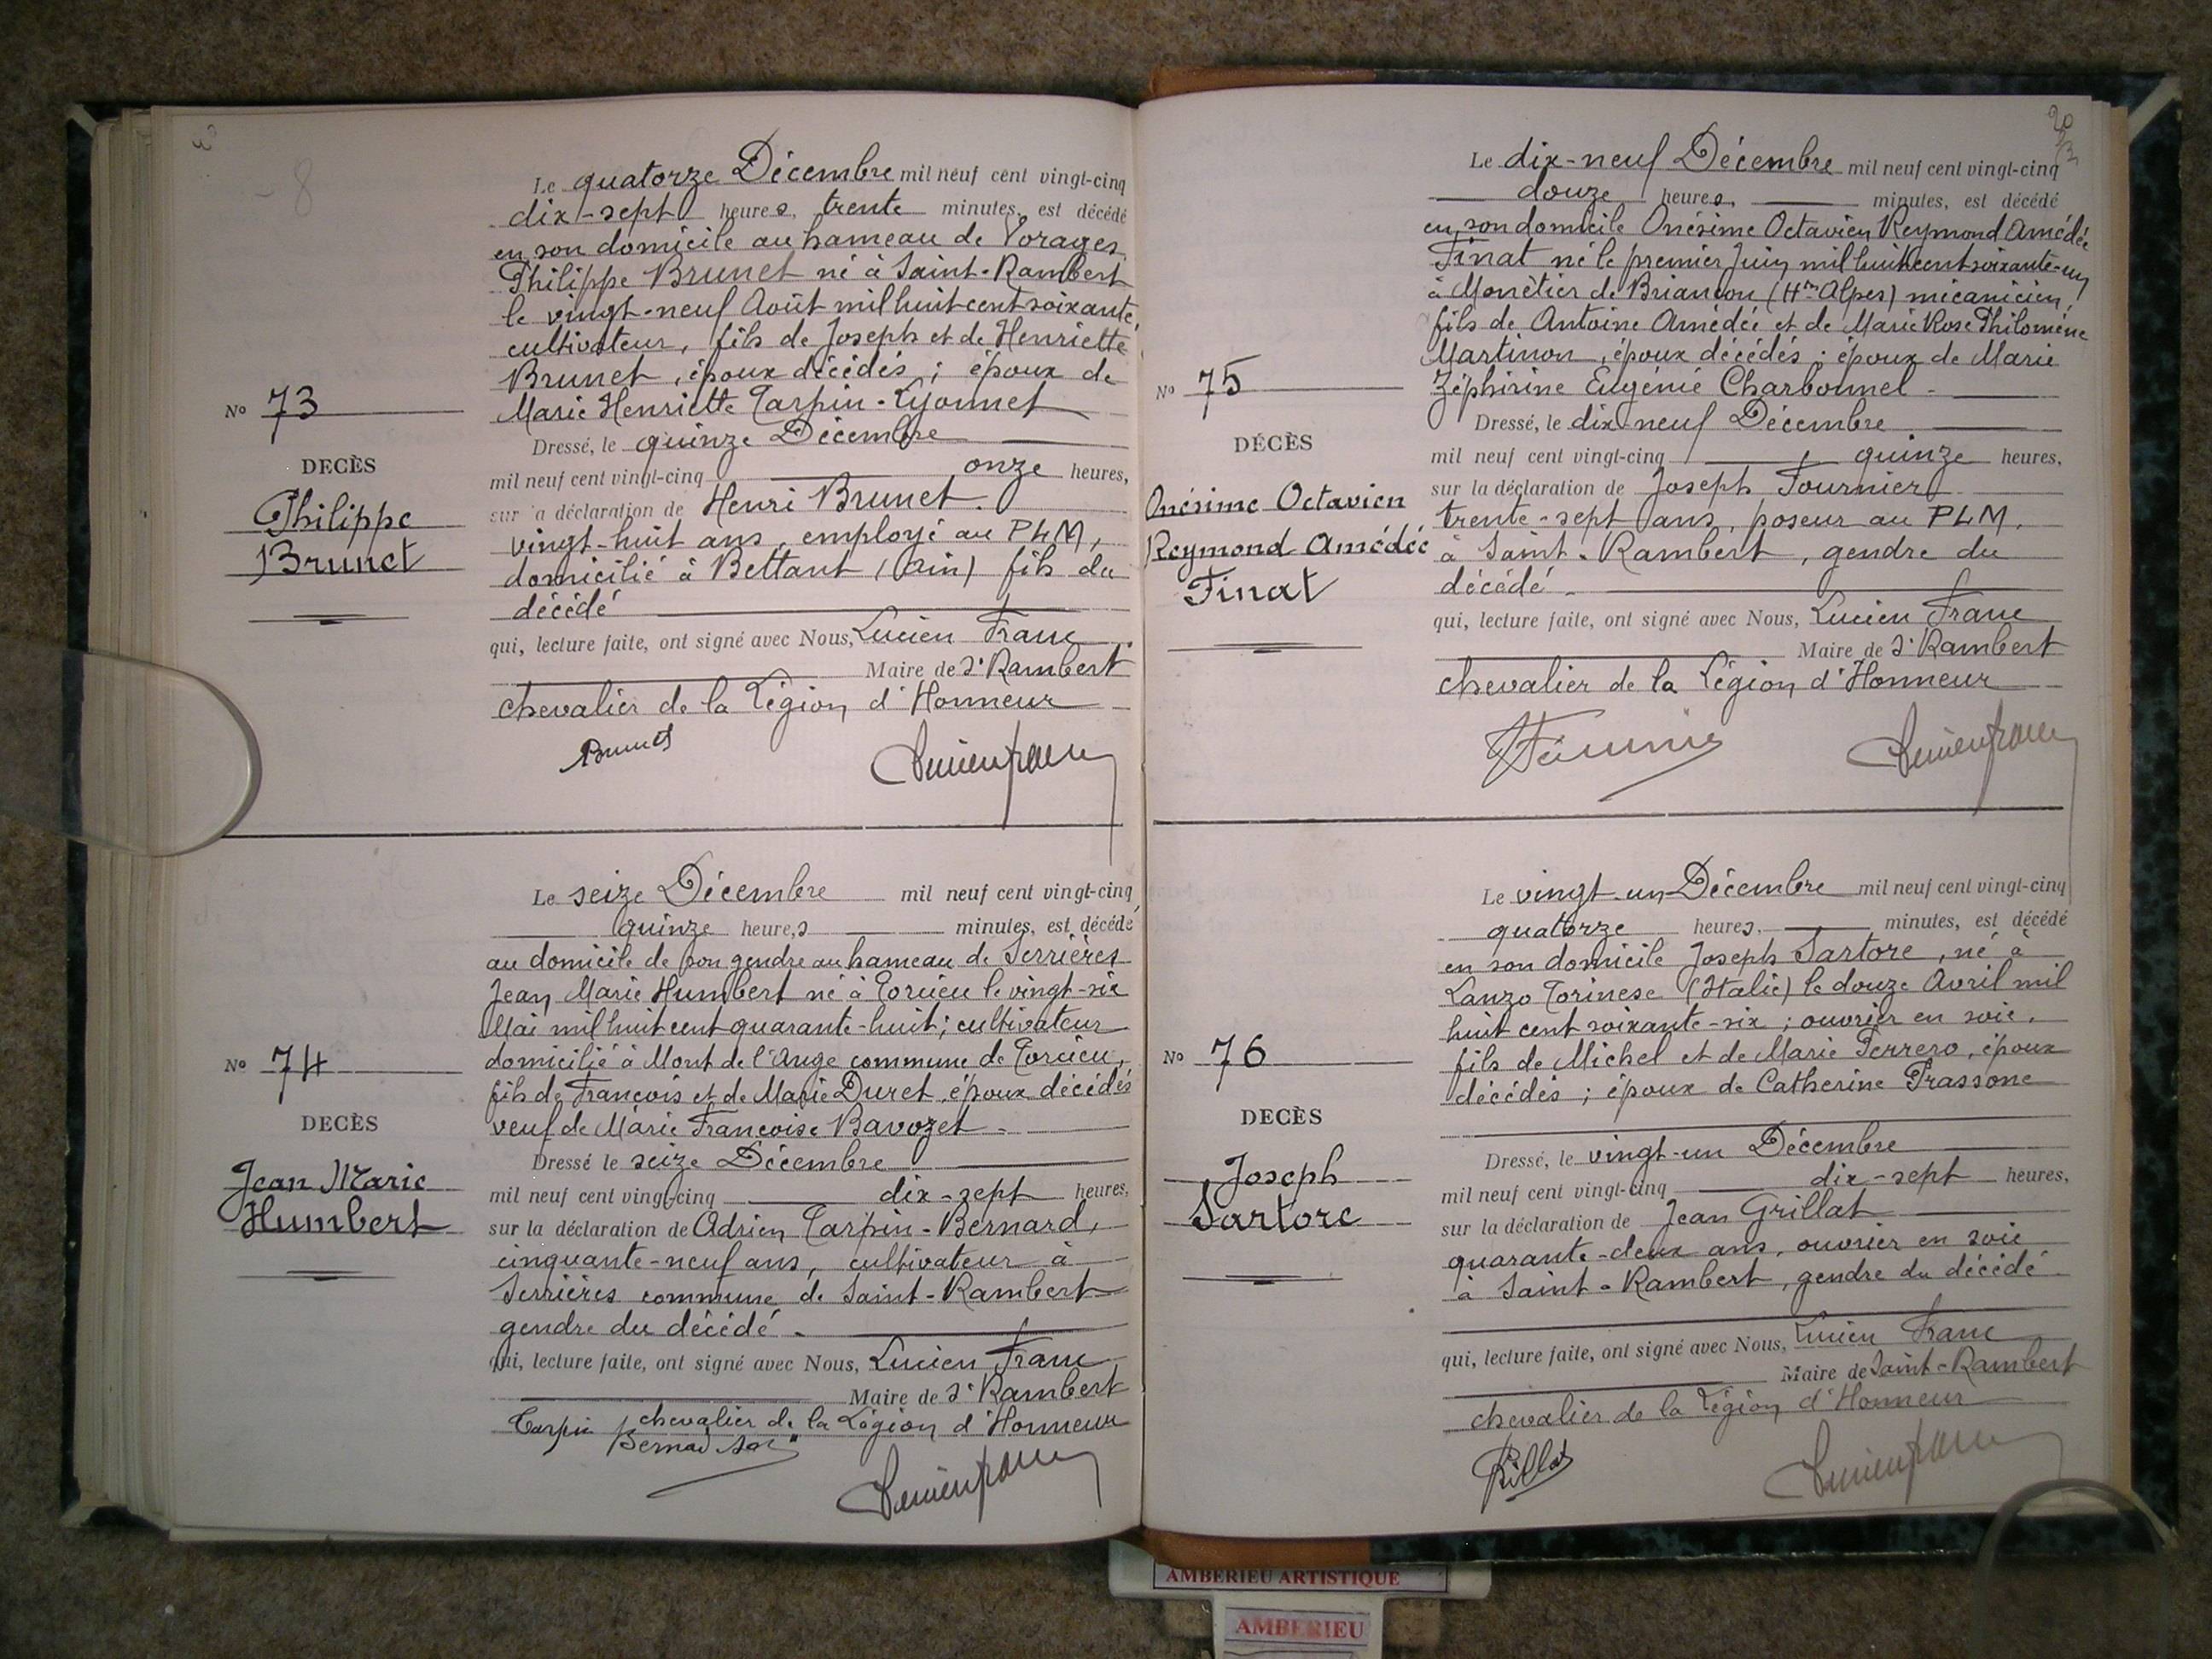 - 8
Le quatorze Décembre mil neuf cent vingt-cinq
dix-sept heures, trente minutes, est décédé
en son domicile au hameau de Vorages
Philippe Brunet né à Saint-Rambert
le vingt-neuf Août mil huit cent soixante,
cultivateur, fils de Joseph et de Henriette
Brunet, époux décédés ; époux de
Marie Henriette Tarpin-Lyonnet
No 73
DECÈS
Philippe
Brunet
Dressé, le quinze Décembre
mil neuf cent vingt-cinq onze heures,
sur la déclaration de Henri Brunet.
vingt-huit ans, employé au PLM,
domicilié à Bettant (Ain) fils du
décédé
qui, lecture faite, ont signé avec Nous, Lucien Franc
Maire de St Rambert
chevalier de la Légion d'Honneur
Brunet
Lucien franc
Le seize Décembre mil neuf cent vingt-cinq
quinze heures minutes, est décédé
au domicile de son gendre au hameau de Serrières
Jean Marie Humbert né à Torcieu le vingt-six
Mai mil huit cent quarante-huit ; cultivateur
domicilié à Mont de l'Ange commune de Torcieu,
fils de François et de Marie Duret, époux décédés
veuf de Marie Françoise Bavozet -
No 74
DECÈS
Jean Marie
Humbert
Dressé le seize Décembre
mil neuf cent vingt-cinq dix-sept heures,
sur la déclaration de Adrien Tarpin-Bernard,
cinquante-neuf ans, cultivateur à
Serrières commune de Saint-Rambert
gendre du décédé -
qui, lecture faite, ont signé avec Nous, Lucien Franc
Maire de St Rambert
chevalier de la Légion d'Honneur
Tarpin Bernard
Lucien franc
20
Le dix-neuf Décembre mil neuf cent vingt-cinq
douze heures, minutes, est décédé
en son domicile Onésime Octavien Reymond Amédée
Finat né le premier Juin mil huit cent soixante-un
à Monêtier de Briançon (Htes Alpes) mécanicien,
fils de Antoine Amédée et de Marie Rose Philomène
Martinon, époux décédés ; époux de Marie
Zéphirine Eugénie Charbonnel -
No 75
DÉCÈS
Onésime Octavien
Reymond Amédée
Finat
Dressé, le dix-neuf Décembre
mil neuf cent vingt-cinq, quinze heures,
sur la déclaration de Joseph Fournier
trente-sept ans, poseur au PLM,
à Saint-Rambert, gendre du
décédé -
qui, lecture faite, ont signé avec Nous, Lucien Franc
Maire de St Rambert
chevalier de la Légion d'Honneur
Lucien franc
Le vingt-un Décembre mil neuf cent vingt-cinq
quatorze heures, minutes, est décédé
en son domicile Joseph Sartore, né à
Lanzo Torinese (Italie) le douze Avril mil
huit cent soixante-six ; ouvrier en soie,
fils de Michel et de Marie Ferrero, époux
décédés ; époux de Catherine Frassone
No 76
DECÈS
Joseph
Sartore
Dressé, le vingt-un Décembre
mil neuf cent vingt-cinq dix-sept heures,
sur la déclaration de Jean Grillat
quarante-deux ans, ouvrier en soie
à Saint-Rambert, gendre du décédé
qui, lecture faite, ont signé avec Nous, Lucien Franc
Maire de Saint-Rambert
chevalier de la Légion d'Honneur
Lucien franc
AMBERIEU ARTISTIQUE
AMBERIEU